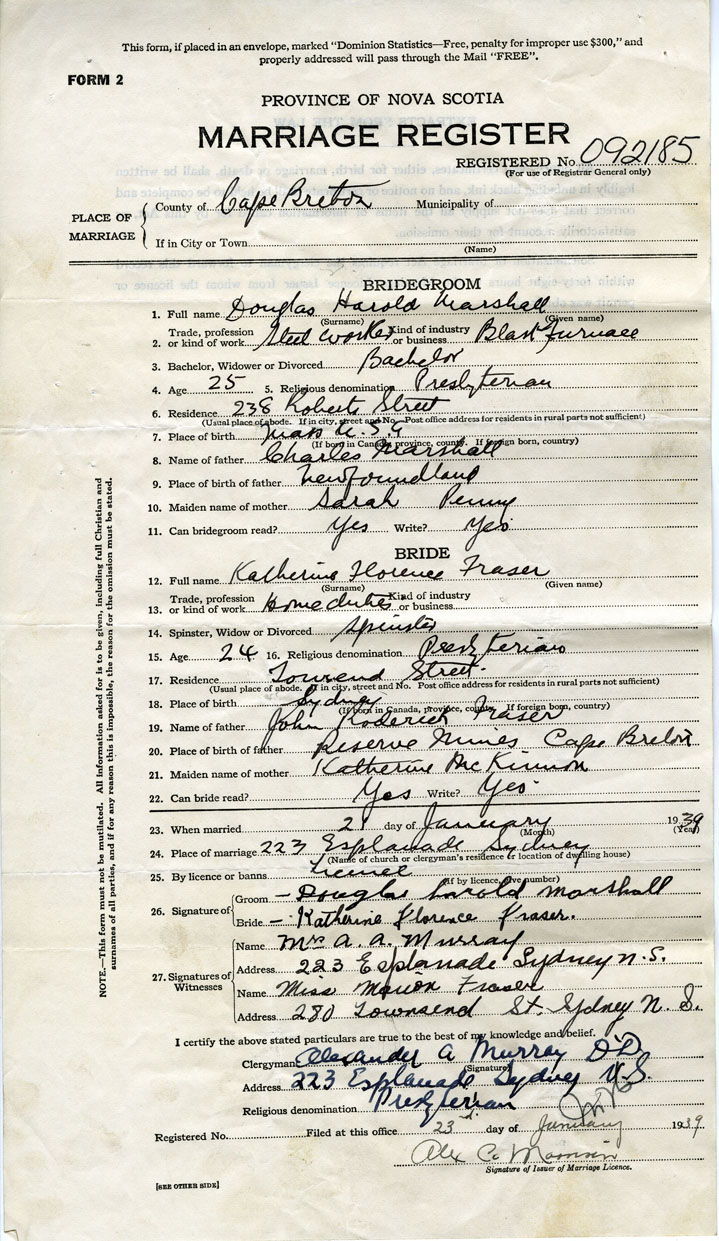 This form, if placed in an envelope, marked "Dominion Statistics—Free, penalty for improper use $300," and
properly addressed will pass through the Mail "FREE".
FORM 2
PROVINCE OF NOVA SCOTIA
MARRIAGE REGISTER
REGISTERED No. 092185
(For use of Registrar General only)
PLACE OF MARRIAGE
County of Cape Breton Municipality of
If in City or Town
(Name)
BRIDEGROOM
1. Full name Douglas Harold Marshall
(Surname) (Given name)
2. Trade, profession or kind of work Steel worker Kind of industry or business Blast furnace
3. Bachelor, Widower or Divorced Bachelor
4. Age 25 5. Religious denomination Presbyterian
6. Residence 238 Roberts Street
(Usual place of abode. If in city, street and No. Post office address for residents in rural parts not sufficient)
7. Place of birth Mass U.S.A
(If born in Canada, province, county. If foreign born, country)
8. Name of father Charles Marshall
9. Place of birth of father Newfoundland
10. Maiden name of mother Sarah Penny
11. Can bridegroom read? Yes Write? Yes
BRIDE
12. Full name Katherine Florence Fraser
(Surname) (Given name)
13. Trade, profession or kind of work Home duties Kind of industry or business
14. Spinster, Widow or Divorced Spinster
15. Age 24 16. Religious denomination Presbyterian
17. Residence Townsend Street.
(Usual place of abode. If in city, street and No. Post office address for residents in rural parts not sufficient)
18. Place of birth Sydney
(If born in Canada, province, county. If foreign born, country)
19. Name of father John Roderick Fraser
20. Place of birth of father Reserve Mines Cape Breton
21. Maiden name of mother Katherine McKinnon
22. Can bride read? Yes Write? Yes
23. When married 21 day of January 1939
(Month) (Year)
24. Place of marriage 223 Esplanade Sydney
(Name of church or clergyman's residence or location of dwelling house)
25. By licence or banns
(If by licence, give number)
26. Signature of
Groom — Douglas Harold Marshall
Bride — Katherine Florence Fraser.
27. Signatures of Witnesses
Name Mrs A. A. Murray
Address 223 Esplanade Sydney N.S.
Name Miss Marion Fraser
Address 280 Townsend St. Sydney N. S.
I certify the above stated particulars are true to the best of my knowledge and belief.
Clergyman Alexander A Murray D.D.
(Signature)
Address 223 Esplanade Sydney N.S.
Religious denomination Presbyterian
Registered No. Filed at this office 23 day of January 1939
Alex C.
Signature of Issuer of Marriage Licence.
[SEE OTHER SIDE]
NOTE.—This form must not be mutilated. All information asked for is to be given, including full Christian and
surnames of all parties, and if for any reason this is impossible, the reason for the omission must be stated.